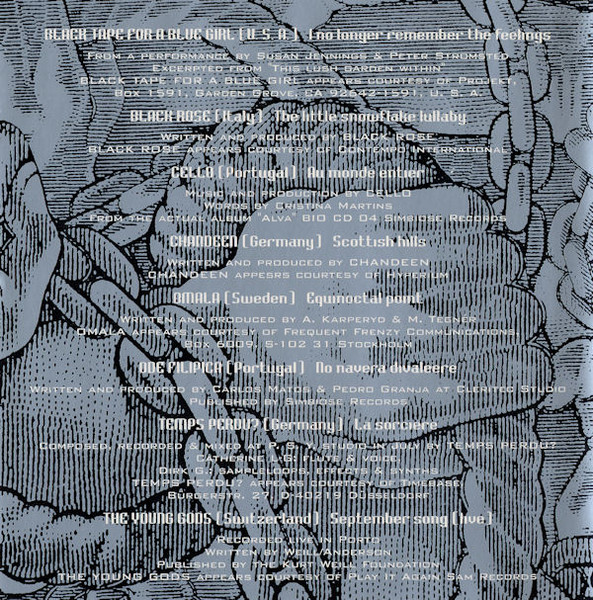 BLACK TAPE FOR A BLUE GIRL (U. S. A.) I no longer remember the feelings
From a performance by Susan Jennings & Peter Stromsted
Excerpted from "This lush garden within"
BLACK TAPE FOR A BLUE GIRL appears courtesy of Projekt,
Box 1591, Garden Grove, CA 92642-1591, U. S. A.
BLACK ROSE (Italy) The little snowflake lullaby
Written and produced by BLACK ROSE
BLACK ROSE appears courtesy of Contempo International
CELLO (Portugal) Au monde entier
Music and production by CELLO
Words by Cristina Martins
From the actual album "Alva" BIO CD 04 Simbiose Records
CHANDEEN (Germany) Scottish hills
Written and produced by CHANDEEN
CHANDEEN appesrs courtesy of Hyperium
OMALA (Sweden) Equinoctal point
Written and produced by A. Karperyd & M. Tegner
OMALA appears courtesy of Frequent Frenzy Communications,
Box 6009, S-102 31 Stockholm
ODE FILIPICA (Portugal) No navera divaleere
Written and produced by Carlos Matos & Pedro Granja at Cleritec Studio
Published by Simbiose Records
TEMPS PERDU? (Germany) La sorcière
Composed, recorded & mixed at P. S. Y. studio in July by TEMPS PERDU?
Catherine L-G: flute & voice
Dirk G.: sampleloops, effects & synths
TEMPS PERDU? appears courtesy of Timebase
Bürgerstr. 27, D-40219 Düsseldorf
THE YOUNG GODS (Switzerland) September song (live)
Recorded live in Porto
Written by Weill/Anderson
Published by the Kurt Weill Foundation
THE YOUNG GODS appears courtesy of Play It Again Sam Records